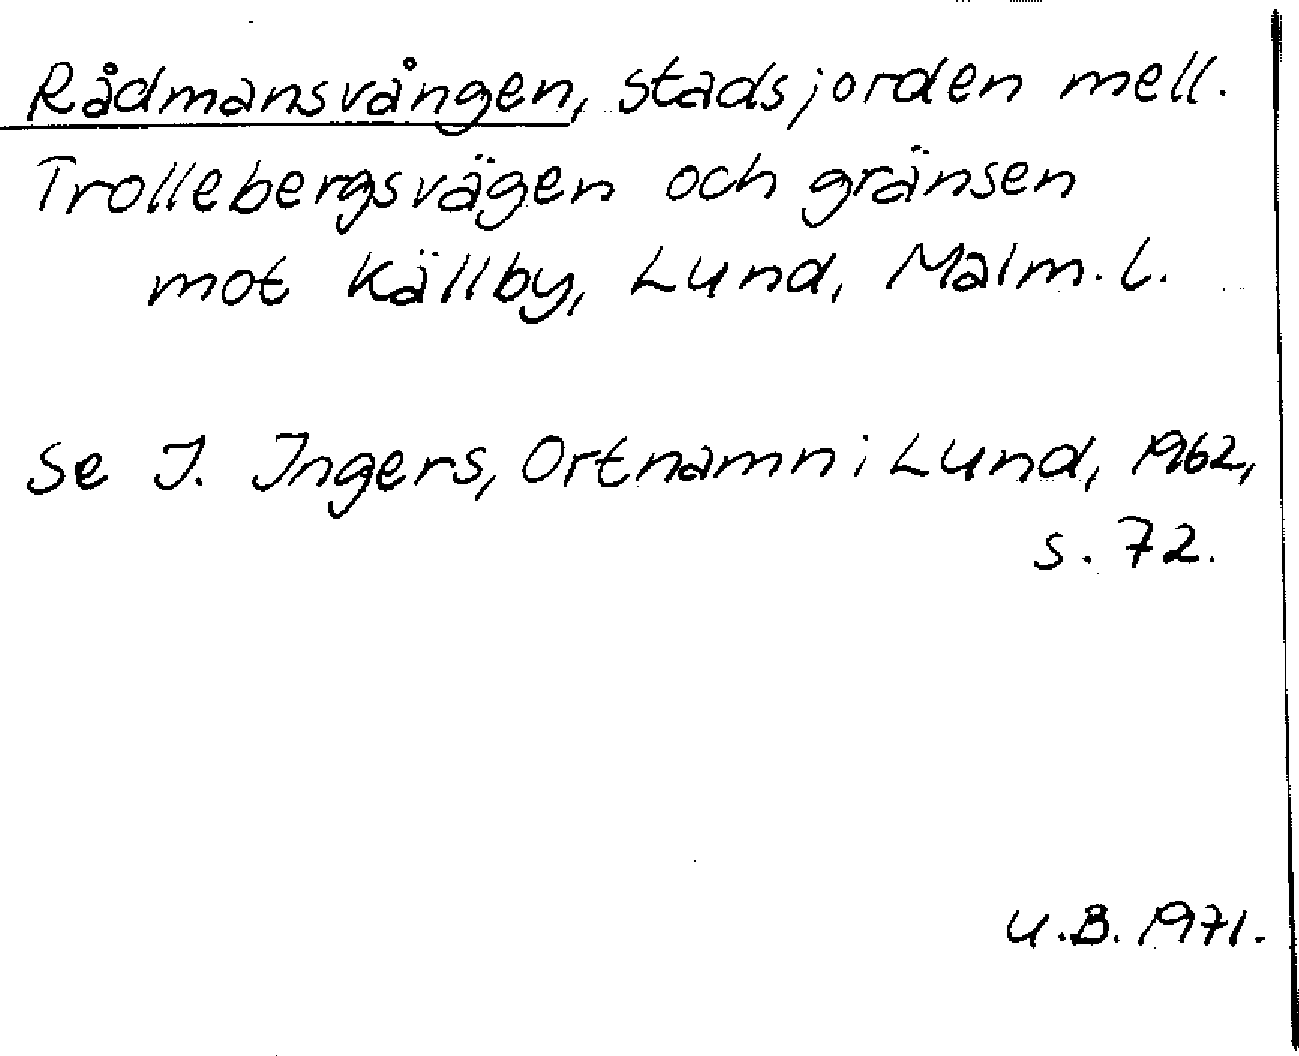 Rådmansvången, stadsjorden mell.
Trollebergsvägen och gränsen
mot Källby, Lund, Malm. l.
Se I. Ingers, Ortnamn i Lund, 1962,
s. 72.
U.B. 1971.